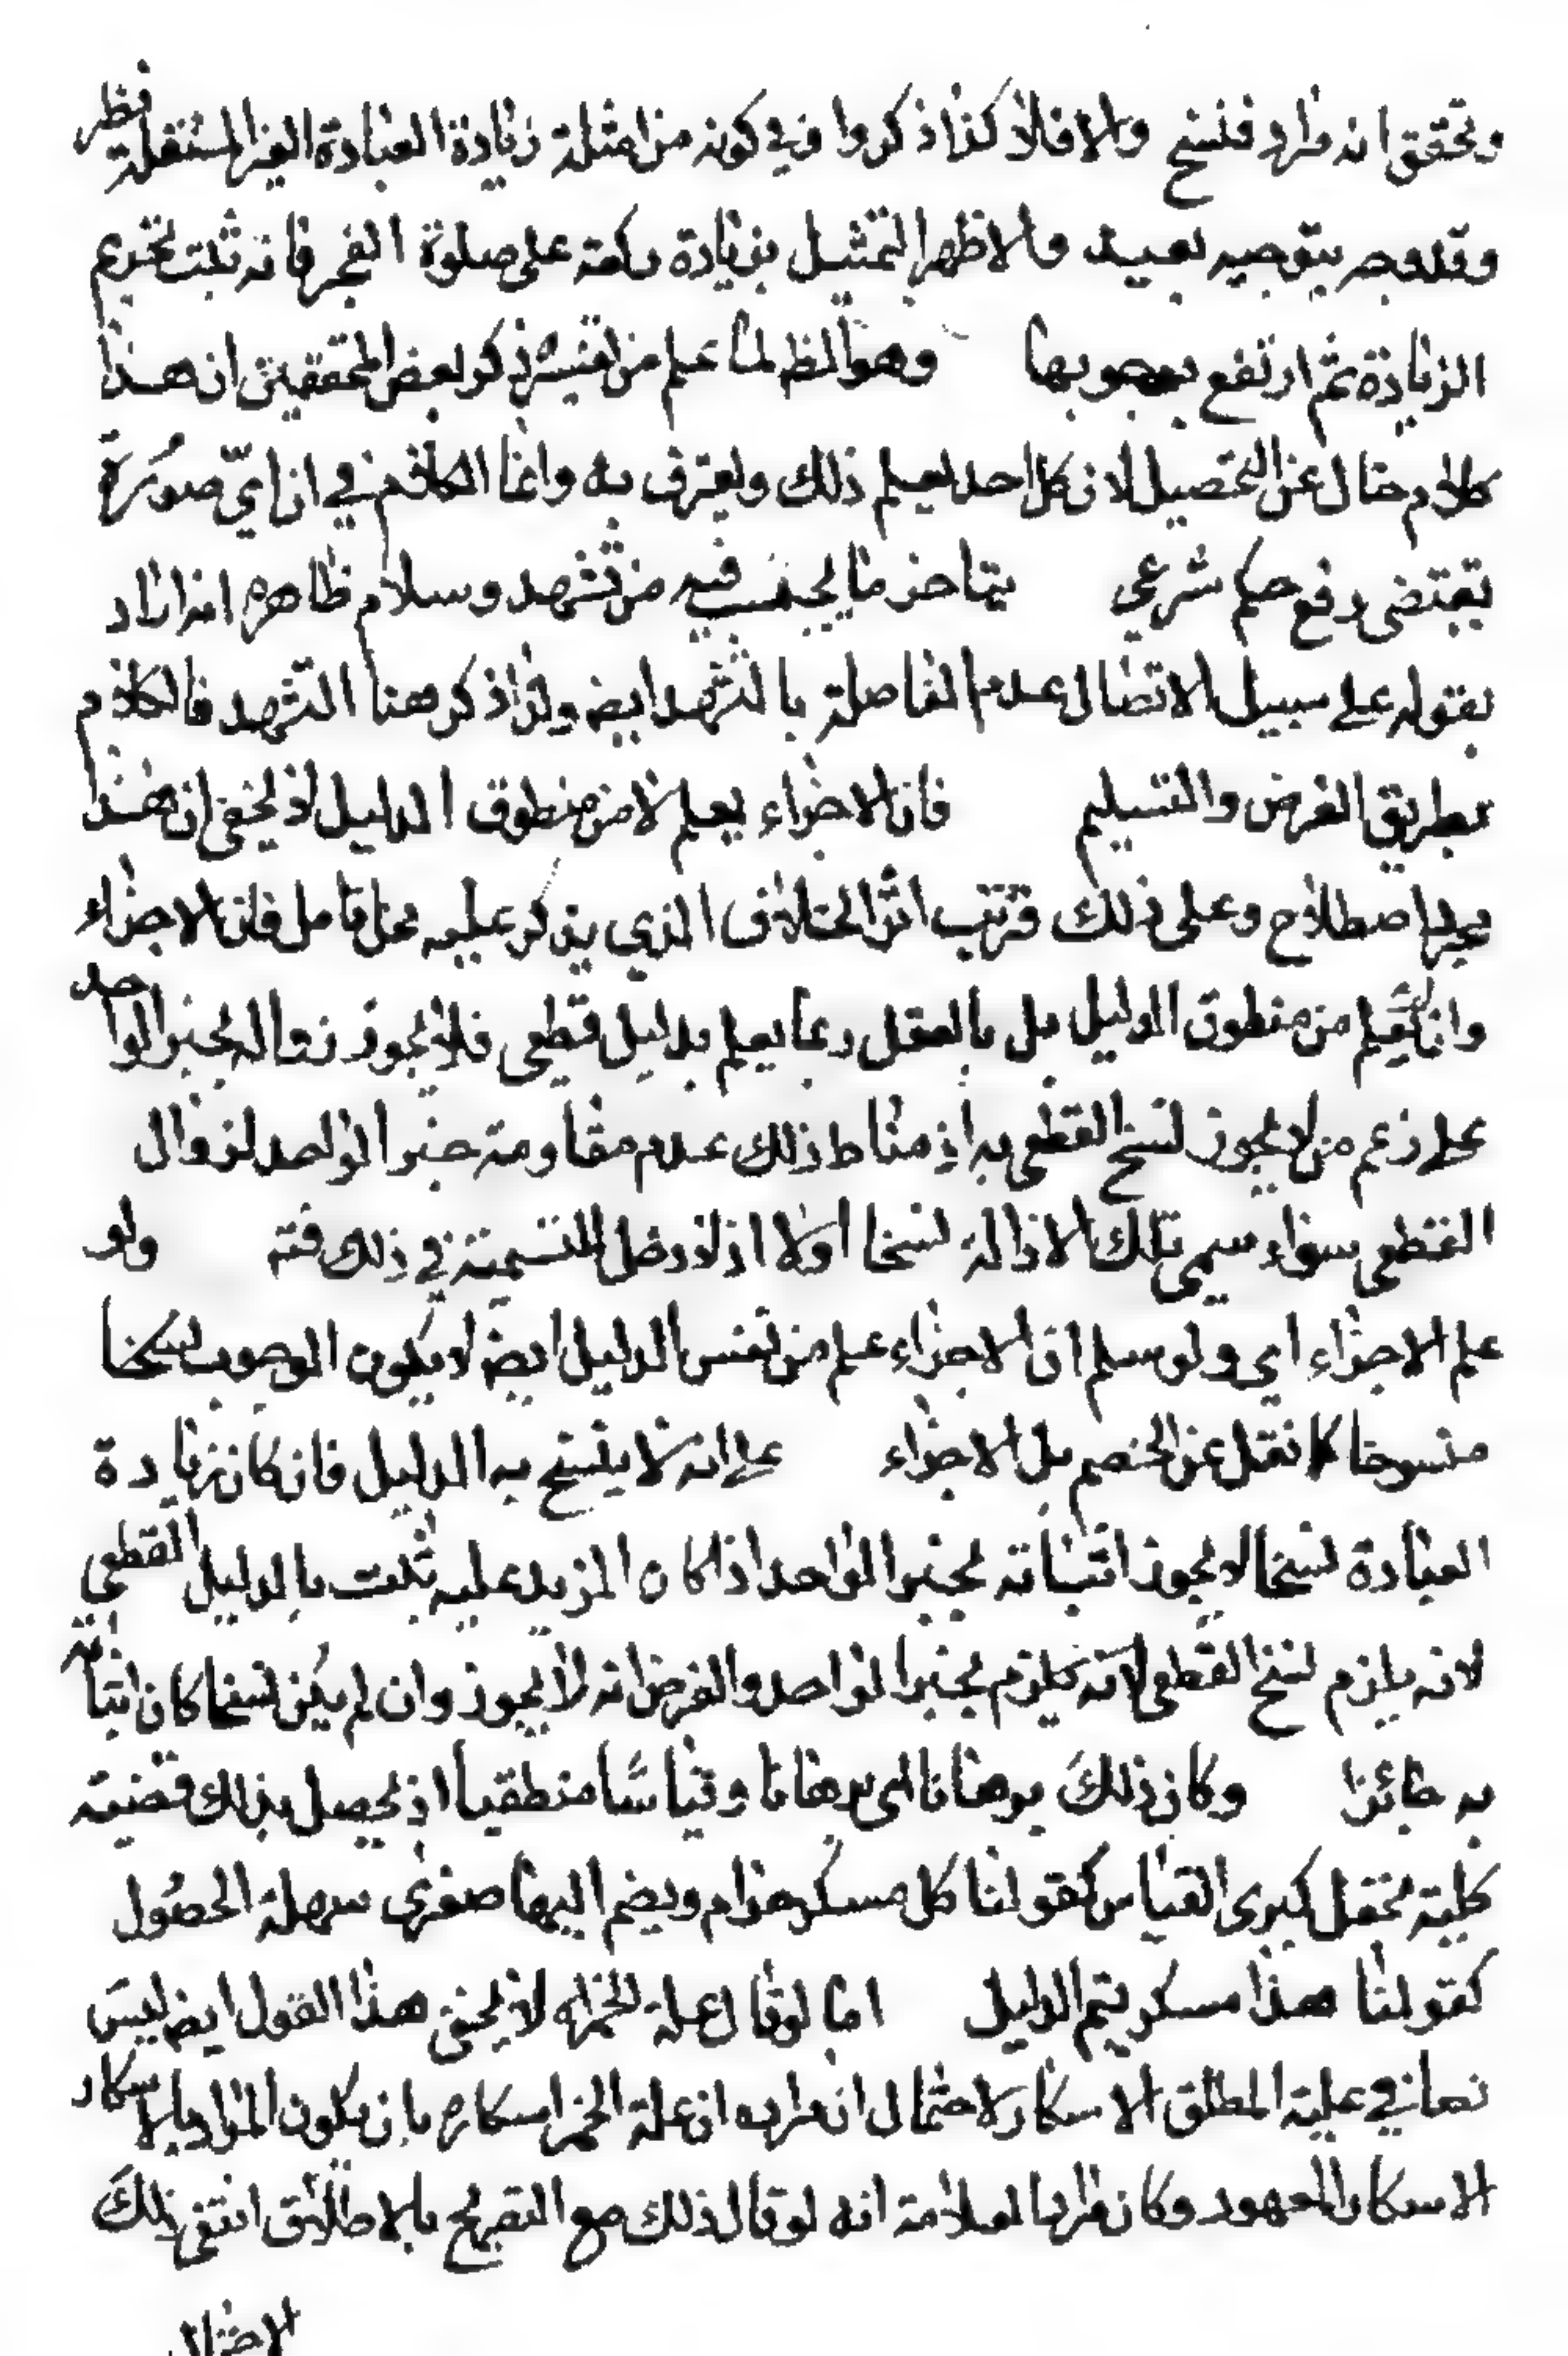 وتحقق انه مراد فنسخ والا فلا كذا ذكروا وفي كونه من امثلة زيادة العبادة الغير المستقلة نظر
وقد وجه بتوجيه بعيد والاظهر التمثيل بزيادة ركعة على صلوة الفجر فانه ثبت تحريم
الزيادة ثم ارتفع بوجوبها وهو الظ لما علم من تفسيره ذكر بعض المحققين ان هذا
كلام خال عن التحصيل لان كل احد يعلم ذلك ويعترف به وانما الكلام في ان اي صورة
تقتضى رفع حكم شرعي يتاخر ما يجب فيه من تشهد وسلام ظاهره انه اراد
بقوله على سبيل الاتصال عدم الفاصلة بالتشهد ايض ولذا ذكر هنا التشهد فالكلام
بطريق الفرض والتسليم فان الاجزاء يعلم لا من منطوق الدليل لا يخفى ان هذا
مجرد اصطلاح وعلى ذلك فترتب اثر الخلاف الذي يذكر عليه محل تامل فان الاجزاء
وان لم يعلم من منطوق الدليل بل بالعقل ربما يعلم بدليل قطعى فلا يجوز زواله بخبر الواحد
على زعم من لا يجوز نسخ القطعى به اذ مناط ذلك عدم مقاومة خبر الواحد لزوال
القطعى سواء سمى تلك الازالة نسخا اولا اذ لا دخل للتسمية في ذلك فته ولو
علم الاجزاء اي ولو سلم ان الاجزاء علم من نفس الدليل ايض لا يكون الوجوب نسخا
منسوخا كما نقل عن الخصم بل الاجزاء على انه لا ينسخ به الدليل فان كان زيادة
العبادة نسخا لا يجوز اثباته بخبر الواحد اذا كان المزيد عليه ثبت بالدليل القطعي
لانه يلزم نسخ القطعى لانه يلزم بخبر الواحد والفرض انه لا يجوز وان لم يكن نسخا كان اثباته
به جائزا وكان ذلك برهانا اى برهانا وقياسا منطقيا اذ يحصل بذلك قضية
كلية تجعل كبرى القياس كقولنا كل مسكر حرام ويضم اليها صغرى سهلة الحصول
كقولنا هذا مسكر يتم الدليل اما لو قال علة الخ لا يخفى هذا القول ايض ليس
نصا في علية المطلق الاسكار لاحتمال ان مراده ان علة الخمر اسكاره بان يكون المراد بالاسكار
الاسكار المعهود وكان مراد العلامة انه لو قال ذلك مع التصريح بالاطلاق انتفى ذلك
الاحتمال